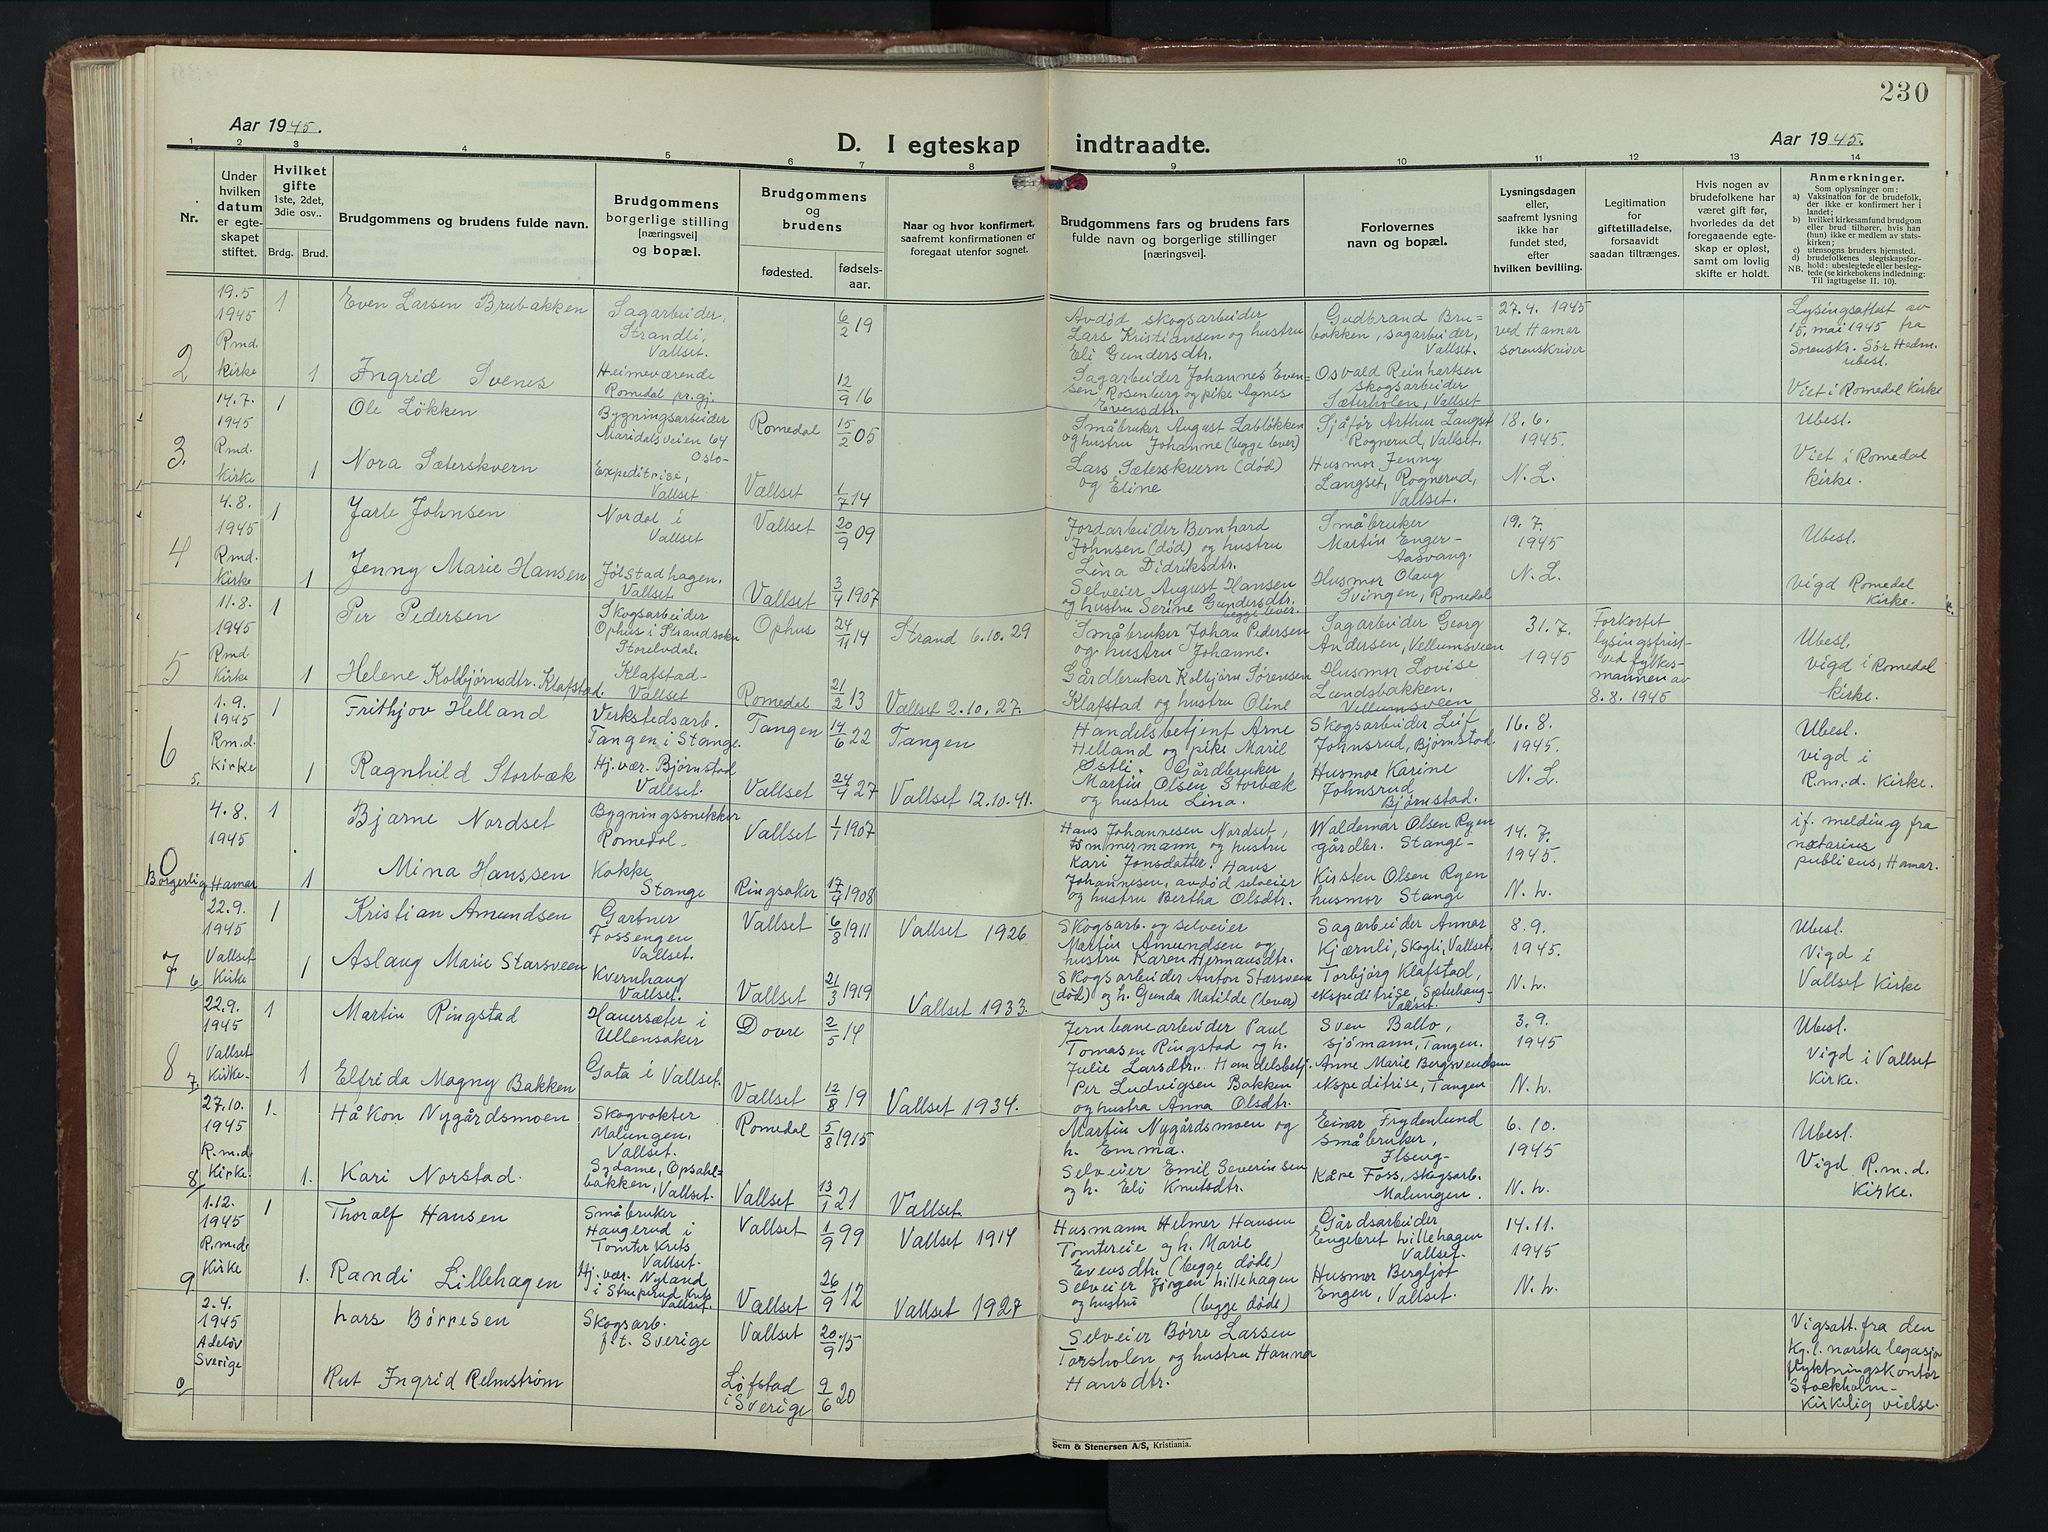 230
Aar 1945.
D. I egteskap indtraadte.
Aar 1945.
1 2 3 4 5 6 7 8 9 10 11 12 13 14
Nr.
Under hvilken datum er egteskapet stiftet.
Hvilket gifte 1ste, 2det, 3die osv..
Brdg. Brud.
Brudgommens og brudens fulde navn.
Brudgommens borgerlige stilling [næringsvei] og bopæl.
Brudgommens og brudens
fødested. fødselsaar.
Naar og hvor konfirmert, saafremt konfirmationen er foregaat utenfor sognet.
Brudgommens fars og brudens fars fulde navn og borgerlige stillinger [næringsvei].
Forlovernes navn og bopæl.
Lysningsdagen eller, saafremt lysning ikke har fundet sted, efter hvilken bevilling.
Legitimation for giftetilladelse, forsaavidt saadan tiltrænges.
Hvis nogen av brudefolkene har været gift før, hvorledes da det foregaaende egteskap er opløst, samt om lovlig skifte er holdt.
Anmerkninger.
Som oplysninger om:
a) Vaksination for de brudefolk, der ikke er konfirmert her i landet;
b) hvilket kirkesamfund brudgom eller brud tilhører, hvis han (hun) ikke er medlem av statskirken;
c) utensogns bruders hjemsted.
d) brudefolkenes slegtskapsforhold: ubeslegtede eller beslegtede (se kirkebokens indledning: Til iagttagelse II. 10).
NB.
2
19.5 1945 Rmd. Kirke
1 Even Larsen Brubakken
Sagarbeider, Strandli, Vallset.
6/2 19
Avdød skogsarbeider Lars Kristiansen og hustru Eli Gundersdtr.
Gudbrand Brubakken, sagarbeider, Vallset.
27.4. 1945 ved Hamar sorenskriver
Lysingsattest av 15. mai 1945 fra Sorenskr. Sör Hedm. ubesl.
1 Ingrid Svenes
Heimeværende Romedal pr.gj.
12/9 16
Sagarbeider Johannes Evensen Rosenberg og pike Agnes Evensdtr.
Osvald Reinhartsen skogsarbeider Sæterholen, Vallset
Viet i Romedal Kirke
3.
14.7. 1945 Rmd. Kirke
1 Ole Lökken
Bygningsarbeider Maridalsveien 64 Oslo-
Romedal 15/2 05
Småbruker August Labløkken og hustru Johanne (begge lever)
Sjåför Arthur Langset Rognerud, Vallset.
18.6. 1945.
Ubesl.
1 Nora Sæterskvern
Expeditrise, Vallset
Vallset 1/7 14
Lars Sæterskvern (død) og Eline
Husmor Jenny Langset, Rognerud, Vallset.
N.L.
Viet i Romedal kirke.
4
4.8. 1945 Rmd. Kirke
1 Jarle Johnsen
Nordal i Vallset
Vallset 20/9 09
Jordarbeider Bernhard Johnsen (død) og hustru Lina Didriksdtr.
Småbruker Martin Enger- Aasvang.
19.7. 1945
Ubesl.
1 Jenny Marie Hansen
Jølstadhagen. Vallset
Vallset 3/4 1907
Selveier August Hansen og hustru Serine Gundersdtr. begge lever.
Husmor Olaug Svingen, Romedal
N.L.
vigd Romedal Kirke.
5
11.8. 1945 Rmd Kirke
1 Per Pedersen
Skogsarbeider Ophus i Strandsokn Storelvdal.
Ophus 24/11 14
Strand 6.10.29
Småbruker Johan Pedersen og hustru Johanne.
Sagarbeider Georg Andersen, Vellumsveen
31.7. 1945
Forkortet lysingsfrist ved fylkesmannen av 8.8.1945
Ubesl. vigd i Romedal kirke.
1 Helene Kolbjørnsdtr. Klafstad.
Klafstad- Vallset
Romedal 21/2 13
Vallset 2.10.27.
Gårdbruker Kolbjørn Sørensen Klafstad og hustru Oline
Husmor Lovise Lundsbakken, Vellumsveen
6 5.
1.9. 1945 Rm.d. Kirke
1 Frithjov Helland
Verkstedsarb. Tangen i Stange.
Tangen 14/6 22
Tangen
Handelsbetjent Arne Helland og pike Marie Østli.
Skogsarbeider Leif Johnsrud, Bjørnstad.
16.8. 1945.
Ubesl.
1 Ragnhild Storbæk
Hj.vær. Bjørnstad Vallset.
Vallset 24/4 27
Vallset 12.10.41.
Gårdbruker Martin Olsen Storbæk og hustru Lina.
Husmor Karine Johnsrud Bjørnstad.
N.L.
vigd i R.m.d. Kirke.
0
Borgerlig
4.8. 1945 Hamar
1 Bjarne Nordset
Bygningssnekker Romedal.
Vallset 1/1 1907
Hans Johannesen Nordset, tømmermann og hustru Kari Jonsdatter.
Waldemar Olsen Ryen gårdbr. Stange-
14.7. 1945.
if. melding fra notarius publicus, Hamar.
1 Mina Hanssen
Kokke Stange
Ringsaker 17/4 1908
Hans Johannesen, avdød selveier og hustru Bertha Olsdtr.
Kirsten Olsen Ryen husmor Stange
N.L.
7 6
22.9. 1945 Vallset Kirke
1 Kristian Amundsen
Gartner Fossengen Vallset.
Vallset 6/8 1911
Vallset 1926
Skogsarb. og selveier Martin Amundsen og hustru Karen Hermansdtr.
Sagarbeider Annar Kjærnli, Skogli, Vallset.
8.9. 1945.
Ubesl.
1 Aslaug Marie Starsveen
Kvernhaug Vallset.
Vallset 21/3 1919
Vallset 1933.
Skogsarbeider Anton Starsveen (død) og h. Gunda Matilde (lever)
Torbjörg Klafstad, ekspeditrise, Sæterhaug- Vallset.
N.L.
Vigd i Vallset Kirke
8 7.
22.9. 1945 Vallset Kirke.
1 Martin Ringstad
Hauersæter i Ullensaker
Dovre 2/5 14
Jernbanearbeider Paul Tomasen Ringstad og h. Julie Larsdtr.
Sven Ballo, sjømann, Tangen.
3.9. 1945
Ubesl.
1 Elfrida Magny Bakken
Gata i Vallset.
Vallset 12/8 19
Vallset 1934.
Handelsbetj. Per Ludvigsen Bakken og hustru Anna Olsdtr.
Anne Marie Bergsvendsen ekspeditrise, Tangen
N.L.
Vigd i Vallset Kirke.
8/
27.10. 1945 R.m.d Kirke.
1. Håkon Nygårdsmoen
Skogvokter Malungen, Vallset.
Romedal 5/8 1915
Martin Nygårdsmoen og h. Emma.
Einar Frydenlund småbruker, Ilseng-
6.10. 1945
Ubesl.
1. Kari Norstad.
Sydame, Opsahlbakken, Vallset.
Vallset 13/1 21
Vallset.
Selveier Emil Severinsen og h. Eli Knutsdtr.
Kåre Foss, skogsarb. Malungen.
N.L.
Vigd R.m.d. Kirke.
9.
1.12. 1945 R.m.d. Kirke
1 Thoralf Hansen
Småbruker Haugerud i Tomter Krets Vallset.
Vallset 1/9 99
Vallset 1914
Husmann Helmer Hansen Tomtereie og h. Marie Evensdtr. (begge døde)
Gårdsarbeider Engebret Lillehagen Vallset.
14.11. 1945
1. Randi Lillehagen
Hj.vær. Nyland i Stuperud Krets Vallset.
Vallset 26/9 12
Vallset 1927
Selveier Jørgen Lillehagen og hustru (begge døde)
Husmor Bergljot Engen, Vallset.
N.L.
0/
2.4. 1945 Adelöv Sverige
Lars Børresen
Skogsarb. f.t. Sverige
Vallset 20/9 15
Selveier Børre Larsen Torsholen og hustru Hanna Hansdtr.
Vigsatt. fra den Kgl. norske legasjon flyktningskontor Stockholm- Kirkelig vielse.
Rut Ingrid Relmström
Löfstad i Sverige 9/6 20
Sem & Stenersen A/S, Kristiania.